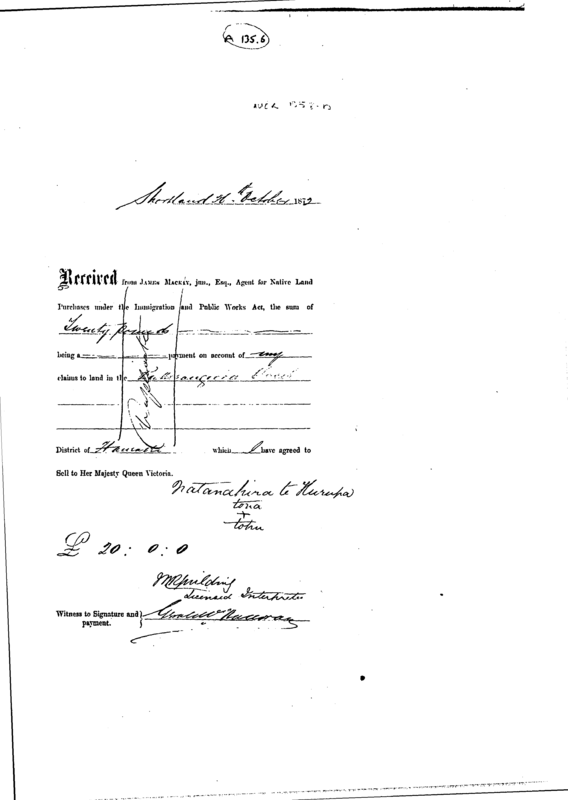 A 135.6
Shortland October 1872
Received from JAMES MACKAY, jun., Esq., Agent for Native Land
Purchases under the Immigration and Public Works Act, the sum of
Twenty Pounds
being a payment on account of my
claims to land in the
District of which I have agreed to
Sell to Her Majesty Queen Victoria.
Natanahira te Hurupa
tona
+
tohu
£ 20 : 0 : 0
Licensed Interpreter
Witness to Signature and
payment.